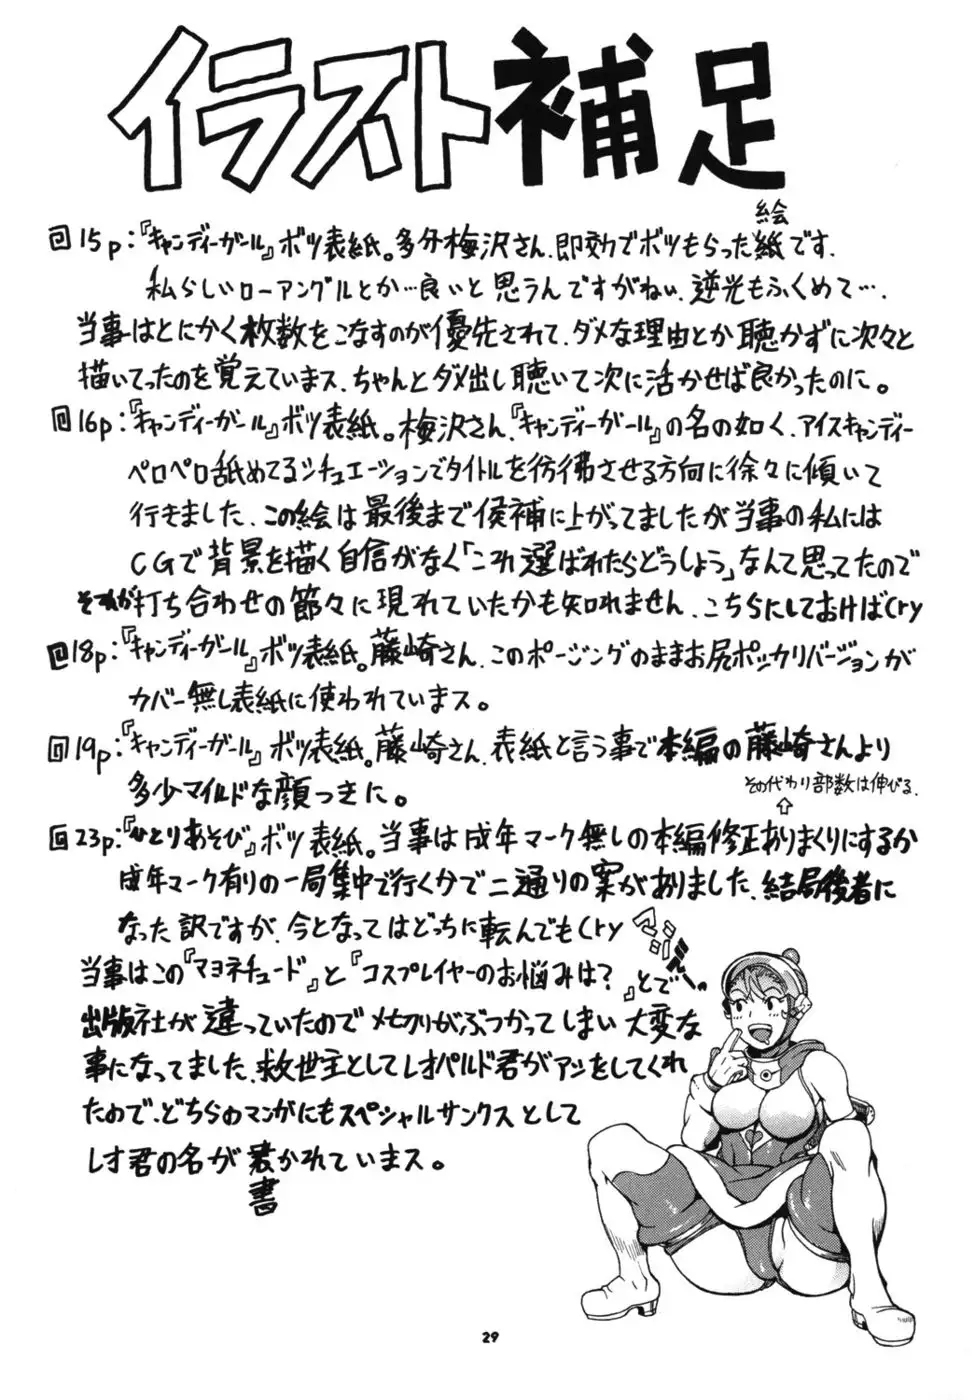 イラスト補足
回15p:『キャンディーガール』ボツ表紙。多分梅沢さん、即効でボツもらった紙です。
絵
私らしいローアングルとか…良いと思うんですがねぃ、逆光もふくめて…。
当事はとにかく枚数をこなすのが優先されて、ダメな理由とか聴かずに次々と
描いてったのを覚えていまス、ちゃんとダメ出し聴いて次に活かせば良かったのに。
回16p:『キャンディーガール』ボツ表紙。梅沢さん、『キャンディーガール』の名の如く、アイスキャンディー
ペロペロ舐めてるシチュエーションでタイトルを彷彿させる方向に徐々に傾いて
行きました、この絵は最後まで候補に上がってましたが当事の私には
CGで背景を描く自信がなく「これ選ばれたらどうしよう」なんて思ってたので
それが打ち合わせの節々に現れていたかも知れません、こちらにしておけばCry
回18p:『キャンディーガール』ボツ表紙。藤崎さん、このポージングのままお尻ポッカリバージョンが
カバー無し表紙に使われていまス。
回19p:『キャンディーガール』ボツ表紙。藤崎さん、表紙と言う事で本編の藤崎さんより
多少マイルドな顔つきに。
その代わり部数は伸びる。
⇧
回23p:『ひとりあそび』ボツ表紙。当事は成年マーク無しの本編修正ありまくりにするか
成年マーク有りの一局集中で行く分で二通りの案がありました、結局後者に
なった訳ですが、今となってはどっちに転んでもCry
マジデー。
当事はこの『マヨネチュード』と『コスプレイヤーのお悩みは?』とで
出版社が違っていたのでメ切りがぶつかってしまい大変な
事になってました、救世主としてレオパルド君がアシをしてくれ
たので、どちらのマンガにもスペシャルサンクスとして
レオ君の名が書かれていまス。
書
29